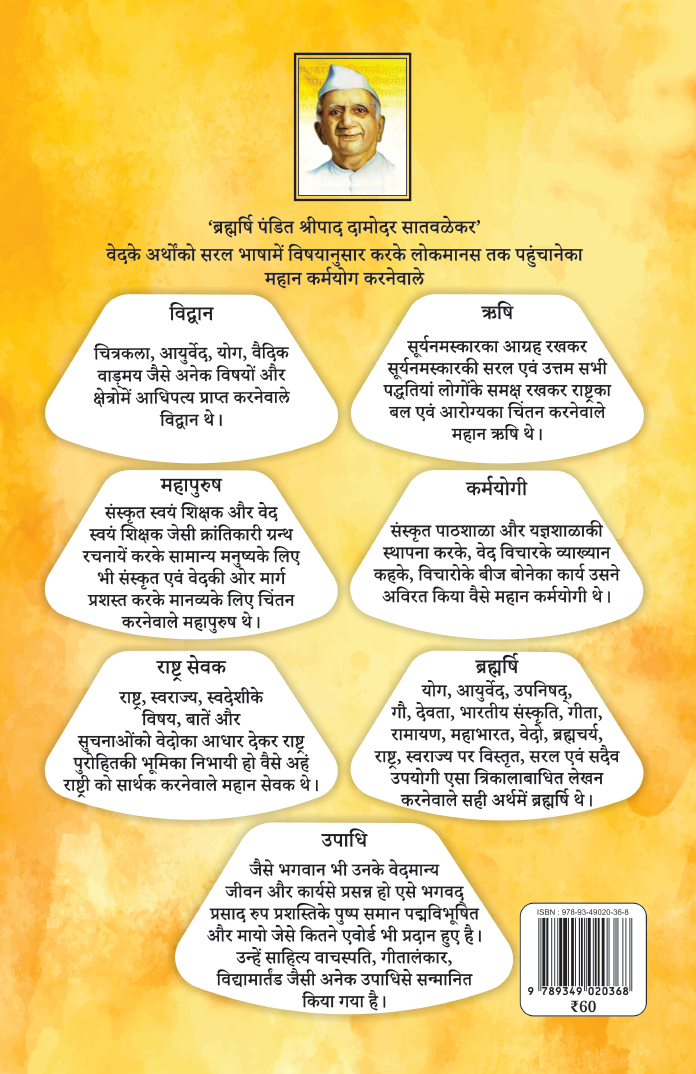 ‘ब्रह्मर्षि पंडित श्रीपाद दामोदर सातवळेकर’
वेदके अर्थोंको सरल भाषामें विषयानुसार करके लोकमानस तक पहुंचानेका
महान कर्मयोग करनेवाले
विद्वान
चित्रकला, आयुर्वेद, योग, वैदिक
वाङ्मय जैसे अनेक विषयों और
क्षेत्रोमें आधिपत्य प्राप्त करनेवाले
विद्वान थे।
ऋषि
सूर्यनमस्कारका आग्रह रखकर
सूर्यनमस्कारकी सरल एवं उत्तम सभी
पद्धतियां लोगोंके समक्ष रखकर राष्ट्रका
बल एवं आरोग्यका चिंतन करनेवाले
महान ऋषि थे।
महापुरुष
संस्कृत स्वयं शिक्षक और वेद
स्वयं शिक्षक जेसी क्रांतिकारी ग्रन्थ
रचनायें करके सामान्य मनुष्यके लिए
भी संस्कृत एवं वेदकी ओर मार्ग
प्रशस्त करके मानव्यके लिए चिंतन
करनेवाले महापुरुष थे।
कर्मयोगी
संस्कृत पाठशाळा और यज्ञशाळाकी
स्थापना करके, वेद विचारके व्याख्यान
कहके, विचारोके बीज बोनेका कार्य उसने
अविरत किया वैसे महान कर्मयोगी थे।
राष्ट्र सेवक
राष्ट्र, स्वराज्य, स्वदेशीके
विषय, बातें और
सुचनाओंको वेदोका आधार देकर राष्ट्र
पुरोहितकी भूमिका निभायी हो वैसे अहं
राष्ट्री को सार्थक करनेवाले महान सेवक थे।
ब्रह्मर्षि
योग, आयुर्वेद, उपनिषद्,
गौ, देवता, भारतीय संस्कृति, गीता,
रामायण, महाभारत, वेदो, ब्रह्मचर्य,
राष्ट्र, स्वराज्य पर विस्तृत, सरल एवं सदैव
उपयोगी एसा त्रिकालाबाधित लेखन
करनेवाले सही अर्थमें ब्रह्मर्षि थे।
उपाधि
जैसे भगवान भी उनके वेदमान्य
जीवन और कार्यसे प्रसन्न हो एसे भगवद्
प्रसाद रुप प्रशस्तिके पुष्प समान पद्मविभूषित
और मायो जेसे कितने एवोर्ड भी प्रदान हुए है।
उन्हें साहित्य वाचस्पति, गीतालंकार,
विद्यामार्तंड जैसी अनेक उपाधिसे सन्मानित
किया गया है।
ISBN : 978-93-49020-36-8
9 789349 020368
₹60